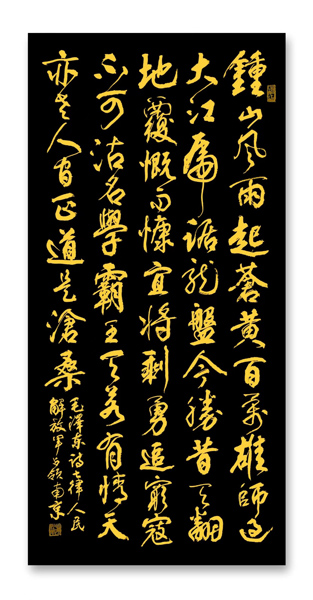 鍾山風雨起蒼黃百萬雄師過
大江虎踞龍盤今勝昔天翻
地覆慨而慷宜將剩勇追窮寇
不可沽名學霸王天若有情天
亦老人間正道是滄桑
毛澤東詩七律人民
解放軍占領南京